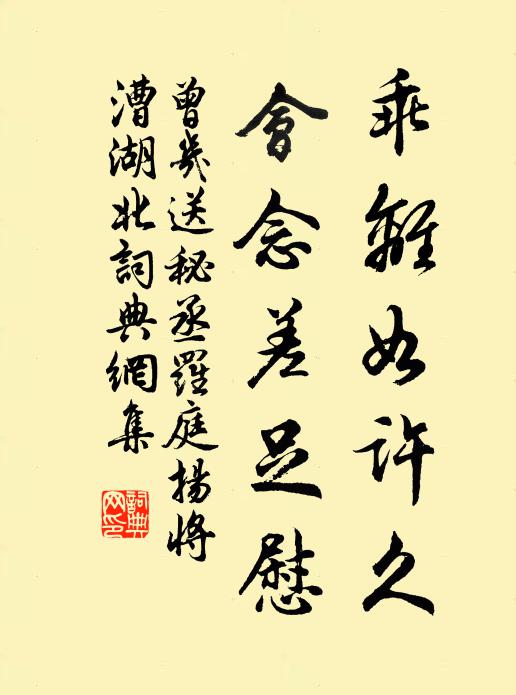 乖離如許久
會念差足慰
曾幾送秘丞羅庭揚將
漕湖北詞典網集
詞典
网印